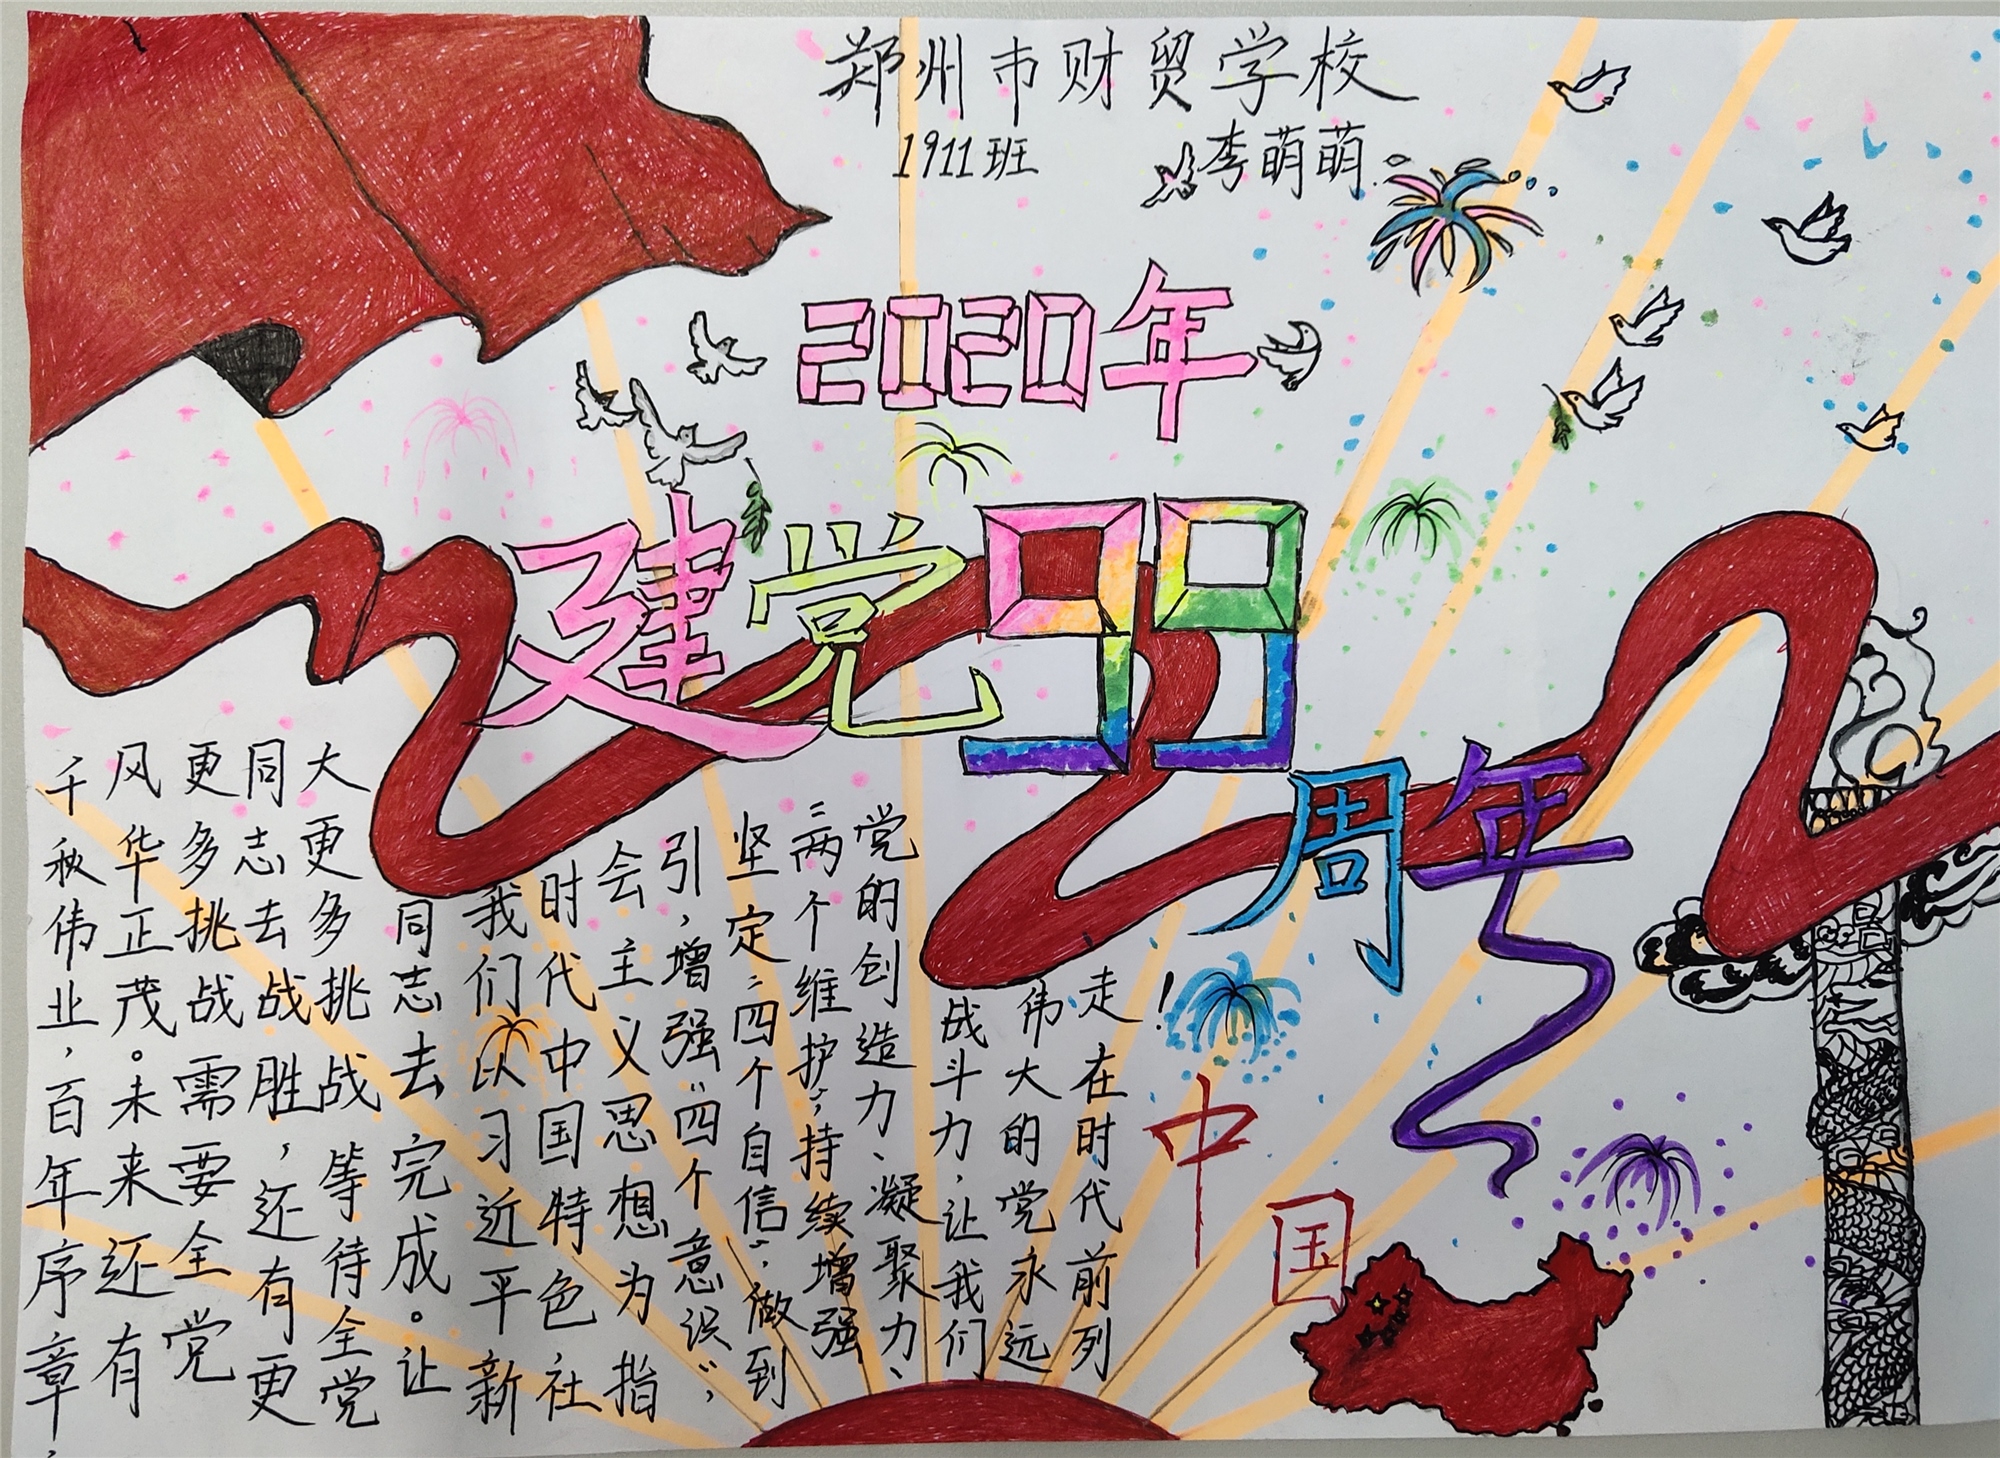 郑州市财贸学校
1911班 李萌萌
2020年
建党99
周年
千秋伟业，百年序章，
风华正茂。未来还有
更多挑战需要全党
同志去战胜，还有更
大更多挑战等待全党
同志去完成。让
我们以习近平新
时代中国特色社
会主义思想为指
引，增强“四个意识”，
坚定“四个自信”，做到
“两个维护”，持续增强
党的创造力、凝聚力、
战斗力，让我们
伟大的党永远
走在时代前列
！
中国